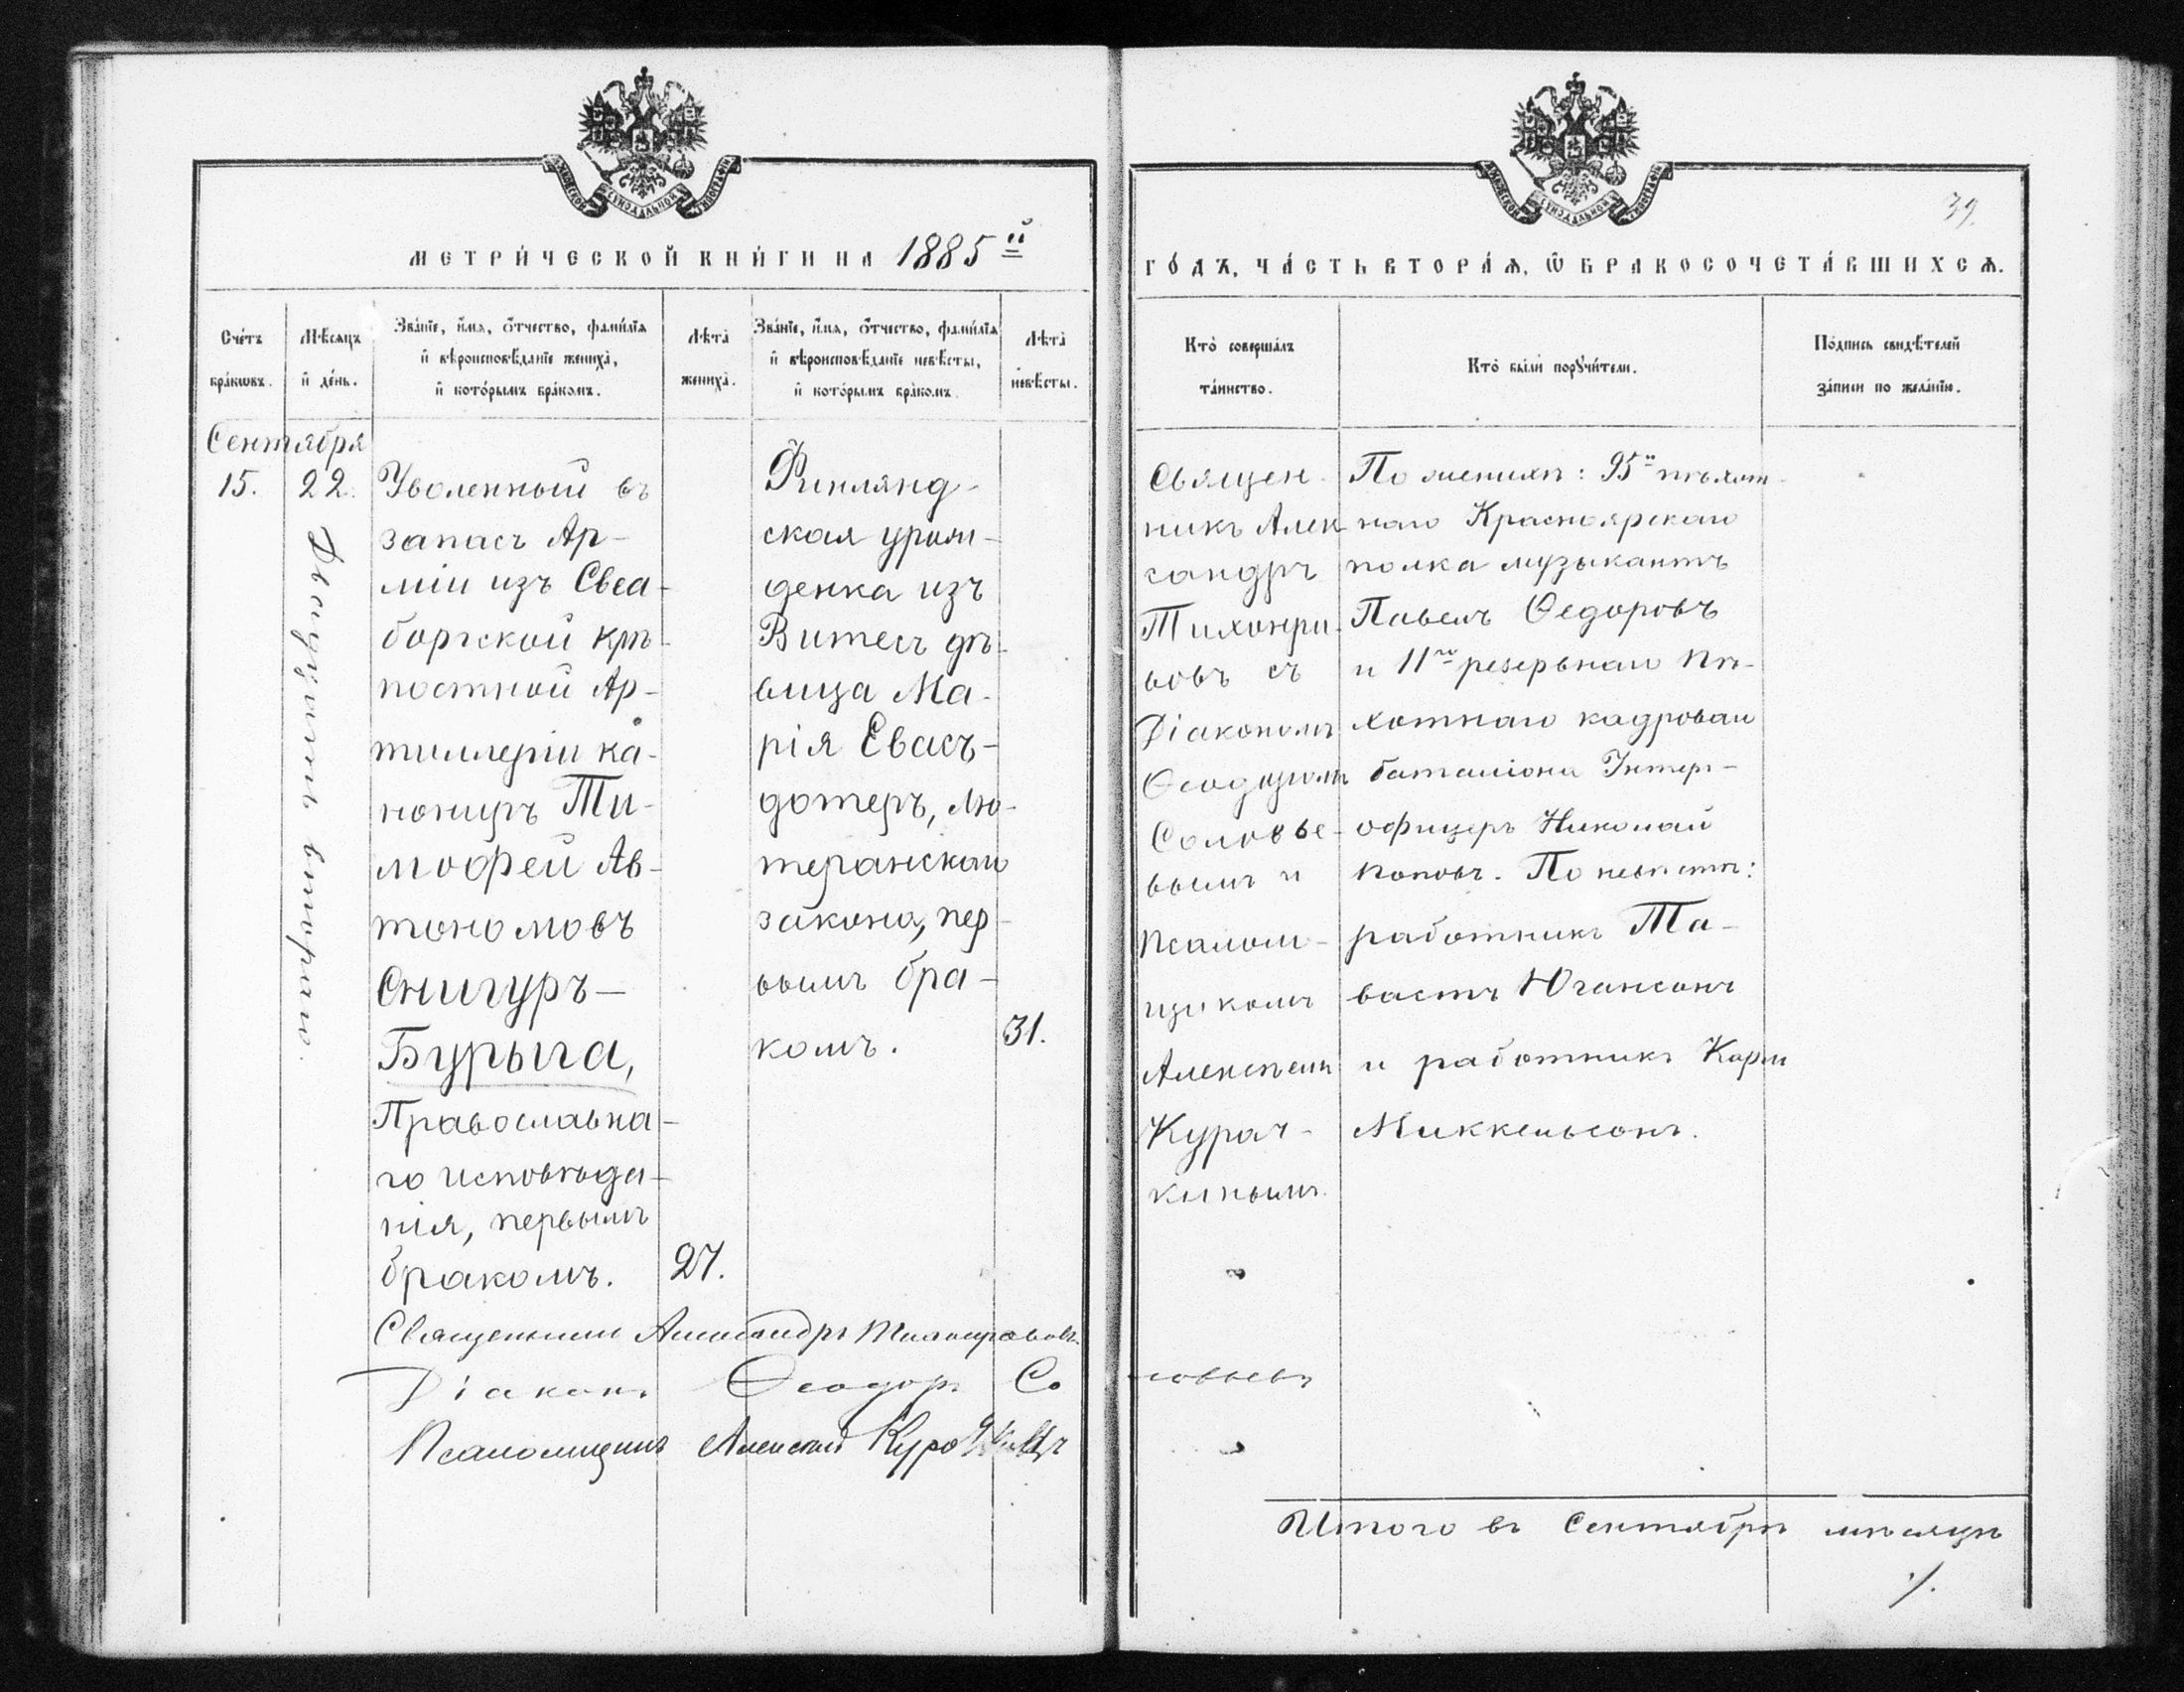 39.
МЕТРИ́ЧЕСКОЙ КНИ́ГИ НА 1885й
ГО́ДЪ, ЧА́СТЬ ВТОРА́Ѧ, Ѿ БРАКОСОЧЕТА́ВШИХСѦ.
Сче́тъ бра́кωвъ.
Мѣ́сяцъ и҆ де́нь.
Зва́нїе, и҆́мѧ, ѻ҆́тчество, фами́лїѧ
и҆ вѣроисповѣ́данїе жениха̀,
и҆ кото́рымъ бра́комъ.
Лѣ́та жениха̀.
Зва́нїе, и҆́мѧ, ѻ҆́тчество, фами́лїѧ
и҆ вѣроисповѣ́данїе невѣ́сты,
и҆ кото́рымъ бра́комъ.
Лѣ́та невѣ́сты.
Кто̀ соверша́лъ
та́инство.
Кто̀ бы́ли порꙋчи́тели.
По́дпись свидѣ́телей
за́писи по жела́нїю.
Сентября
15.
22.
Двадцать втораго.
Уволенный въ
запасъ Ар-
міи изъ Свеа-
боргской крѣ-
постной Ар-
тиллеріи ка-
нониръ Ти-
мофей Ав-
тономовъ
Снигуръ-
Бурыга,
Православна-
го исповѣда-
нія, первымъ
бракомъ.
27.
Финлянд-
ская урож-
денка изъ
Витесъ дѣ-
вица Ма-
рія Евасъ-
дотеръ, лю-
теранскаго
закона, пер-
вымъ бра-
комъ.
31.
Священ-
никъ Алек-
сандръ
Тихомиро-
вовъ съ
Діакономъ
Ѳеодоромъ
Соловье-
вымъ и
Псалом-
щикомъ
Алексѣемъ
Курач-
кинымъ.
По женихѣ: 95й пѣхот-
наго Красноярскаго
полка музыкантъ
Павелъ Ѳедоровъ
и 11го резервнаго пѣ-
хотнаго кадроваго
баталіона Унтеръ-
офицеръ Николай
Поповъ. По невѣстѣ:
работникъ Та-
вастъ Югансонъ
и работникъ Карлъ
Миккельсонъ.
Священникъ Александръ
Діаконъ Ѳеодоръ Соловьевъ
Псаломщикъ Алексѣй
Итого въ Сентябрѣ мѣсяцѣ